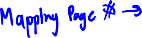 Mapping Page # →